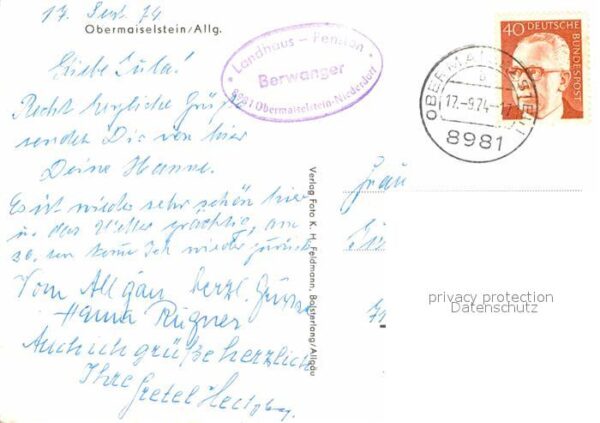 17. Sept. 74
Obermaiselstein/Allg.
Landhaus - Pension
Berwanger
8981 Obermaiselstein-Niederdorf
40
DEUTSCHE
BUNDESPOST
OBERMAISELSTEIN
b
17.-9.74-17
8981
Liebe Jula!
Recht herzliche Grüße
sendet Dir von hier
Deine Hanne.
Es ist wieder sehr schön hier
u. das Wetter prächtig, am
30. komme ich wieder zurück
Vom Allgäu herzl. Grüße
Hanna Rügner
Auch ich grüße herzlich
Ihre Gretel
Verlag Foto K. H. Feldmann, Bolsterlang/Allgäu
Frau
privacy protection
Datenschutz